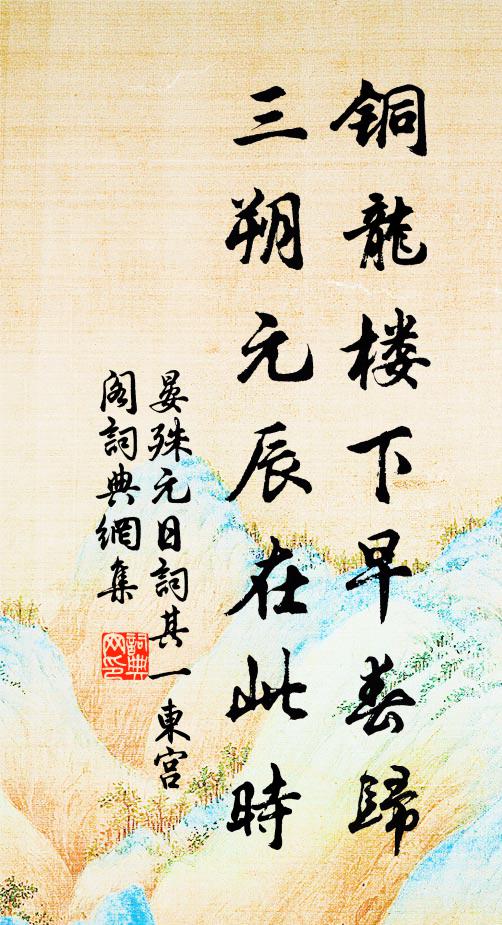 铜龍楼下早春歸
三朔元辰在此時
晏殊元日詞其一東宮
閣詞典網集
詞典